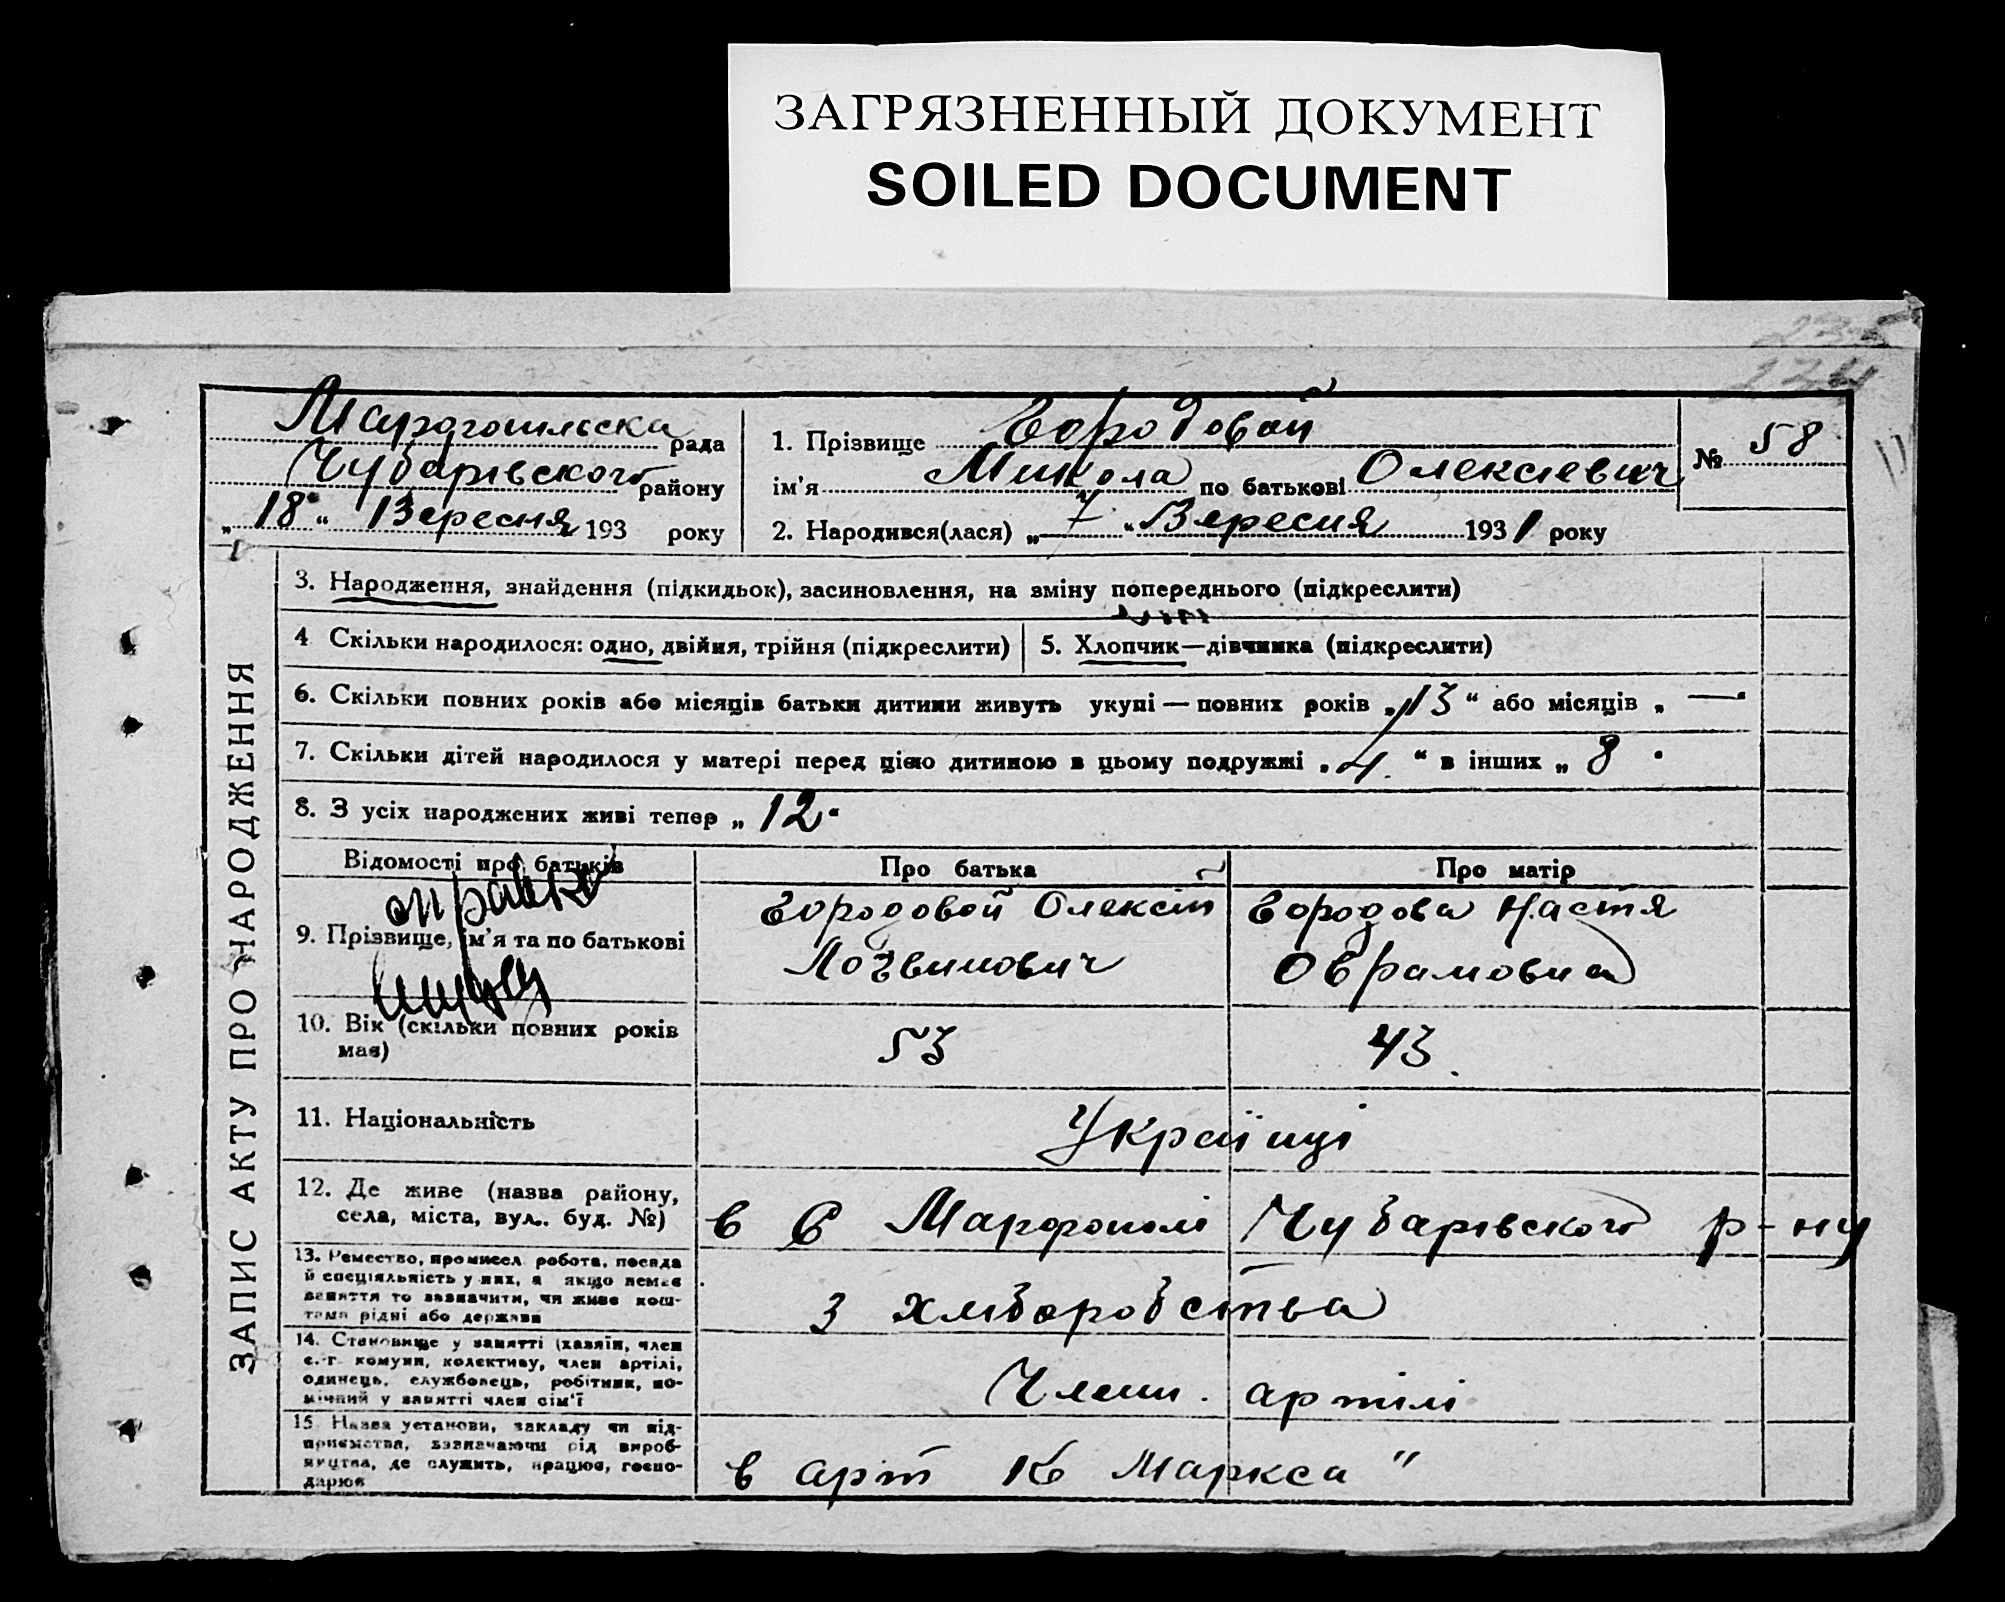 ЗАГРЯЗНЕННЫЙ ДОКУМЕНТ
SOILED DOCUMENT
рада
Чубарівського району
„18“ Вересня 193 року
1
1. Прізвище Бородовой
ім'я Микола по батькові Олексієвич
2. Народився(лася) „7“ Вересня 1931 року
№ 58
ЗАПИС АКТУ ПРО НАРОДЖЕННЯ
3. Народження, знайдення (підкидьок), засиновлення, на зміну попереднього (підкреслити)
4 Скільки народилося: одно, двійня, трійня (підкреслити)
5. Хлопчик—дівчинка (підкреслити)
6. Скільки повних років або місяців батьки дитини живуть укупі — повних років „13“ або місяців „ —“
7. Скільки дітей народилося у матері перед цією дитиною в цьому подружжі „4.“ в інших „ 8 “
8. З усіх народжених живі тепер „12“
Відомості про батьків
Про батька
Про матір
9. Прізвище, ім'я та по батькові
Бородовой Олексій
Логвинович
Бородова Настя
Оврамовна
10. Вік (скільки повних років
має)
53
43.
11. Національність
Українці
12. Де живе (назва району,
села, міста, вул., буд. №)
в С Марфополі Чубарівського р-ну
13. Ремество, промисел робота, посада
й спеціяльність у них, а якщо немає
заняття то зазначити, чи живе кош-
тами рідні або держави
з хліборобства
14. Становище у занятті (хазяїн, член
с.-г. комуни, колективу, член артілі,
одинець, службовець, робітник, по-
мічний у занятті член сім'ї
Члени. артілі
15. Назва установи, закладу чи під-
приємства, зазначаючи рід вироб-
ництва, де служить, працює, госпо-
дарює
в арт К Маркса "